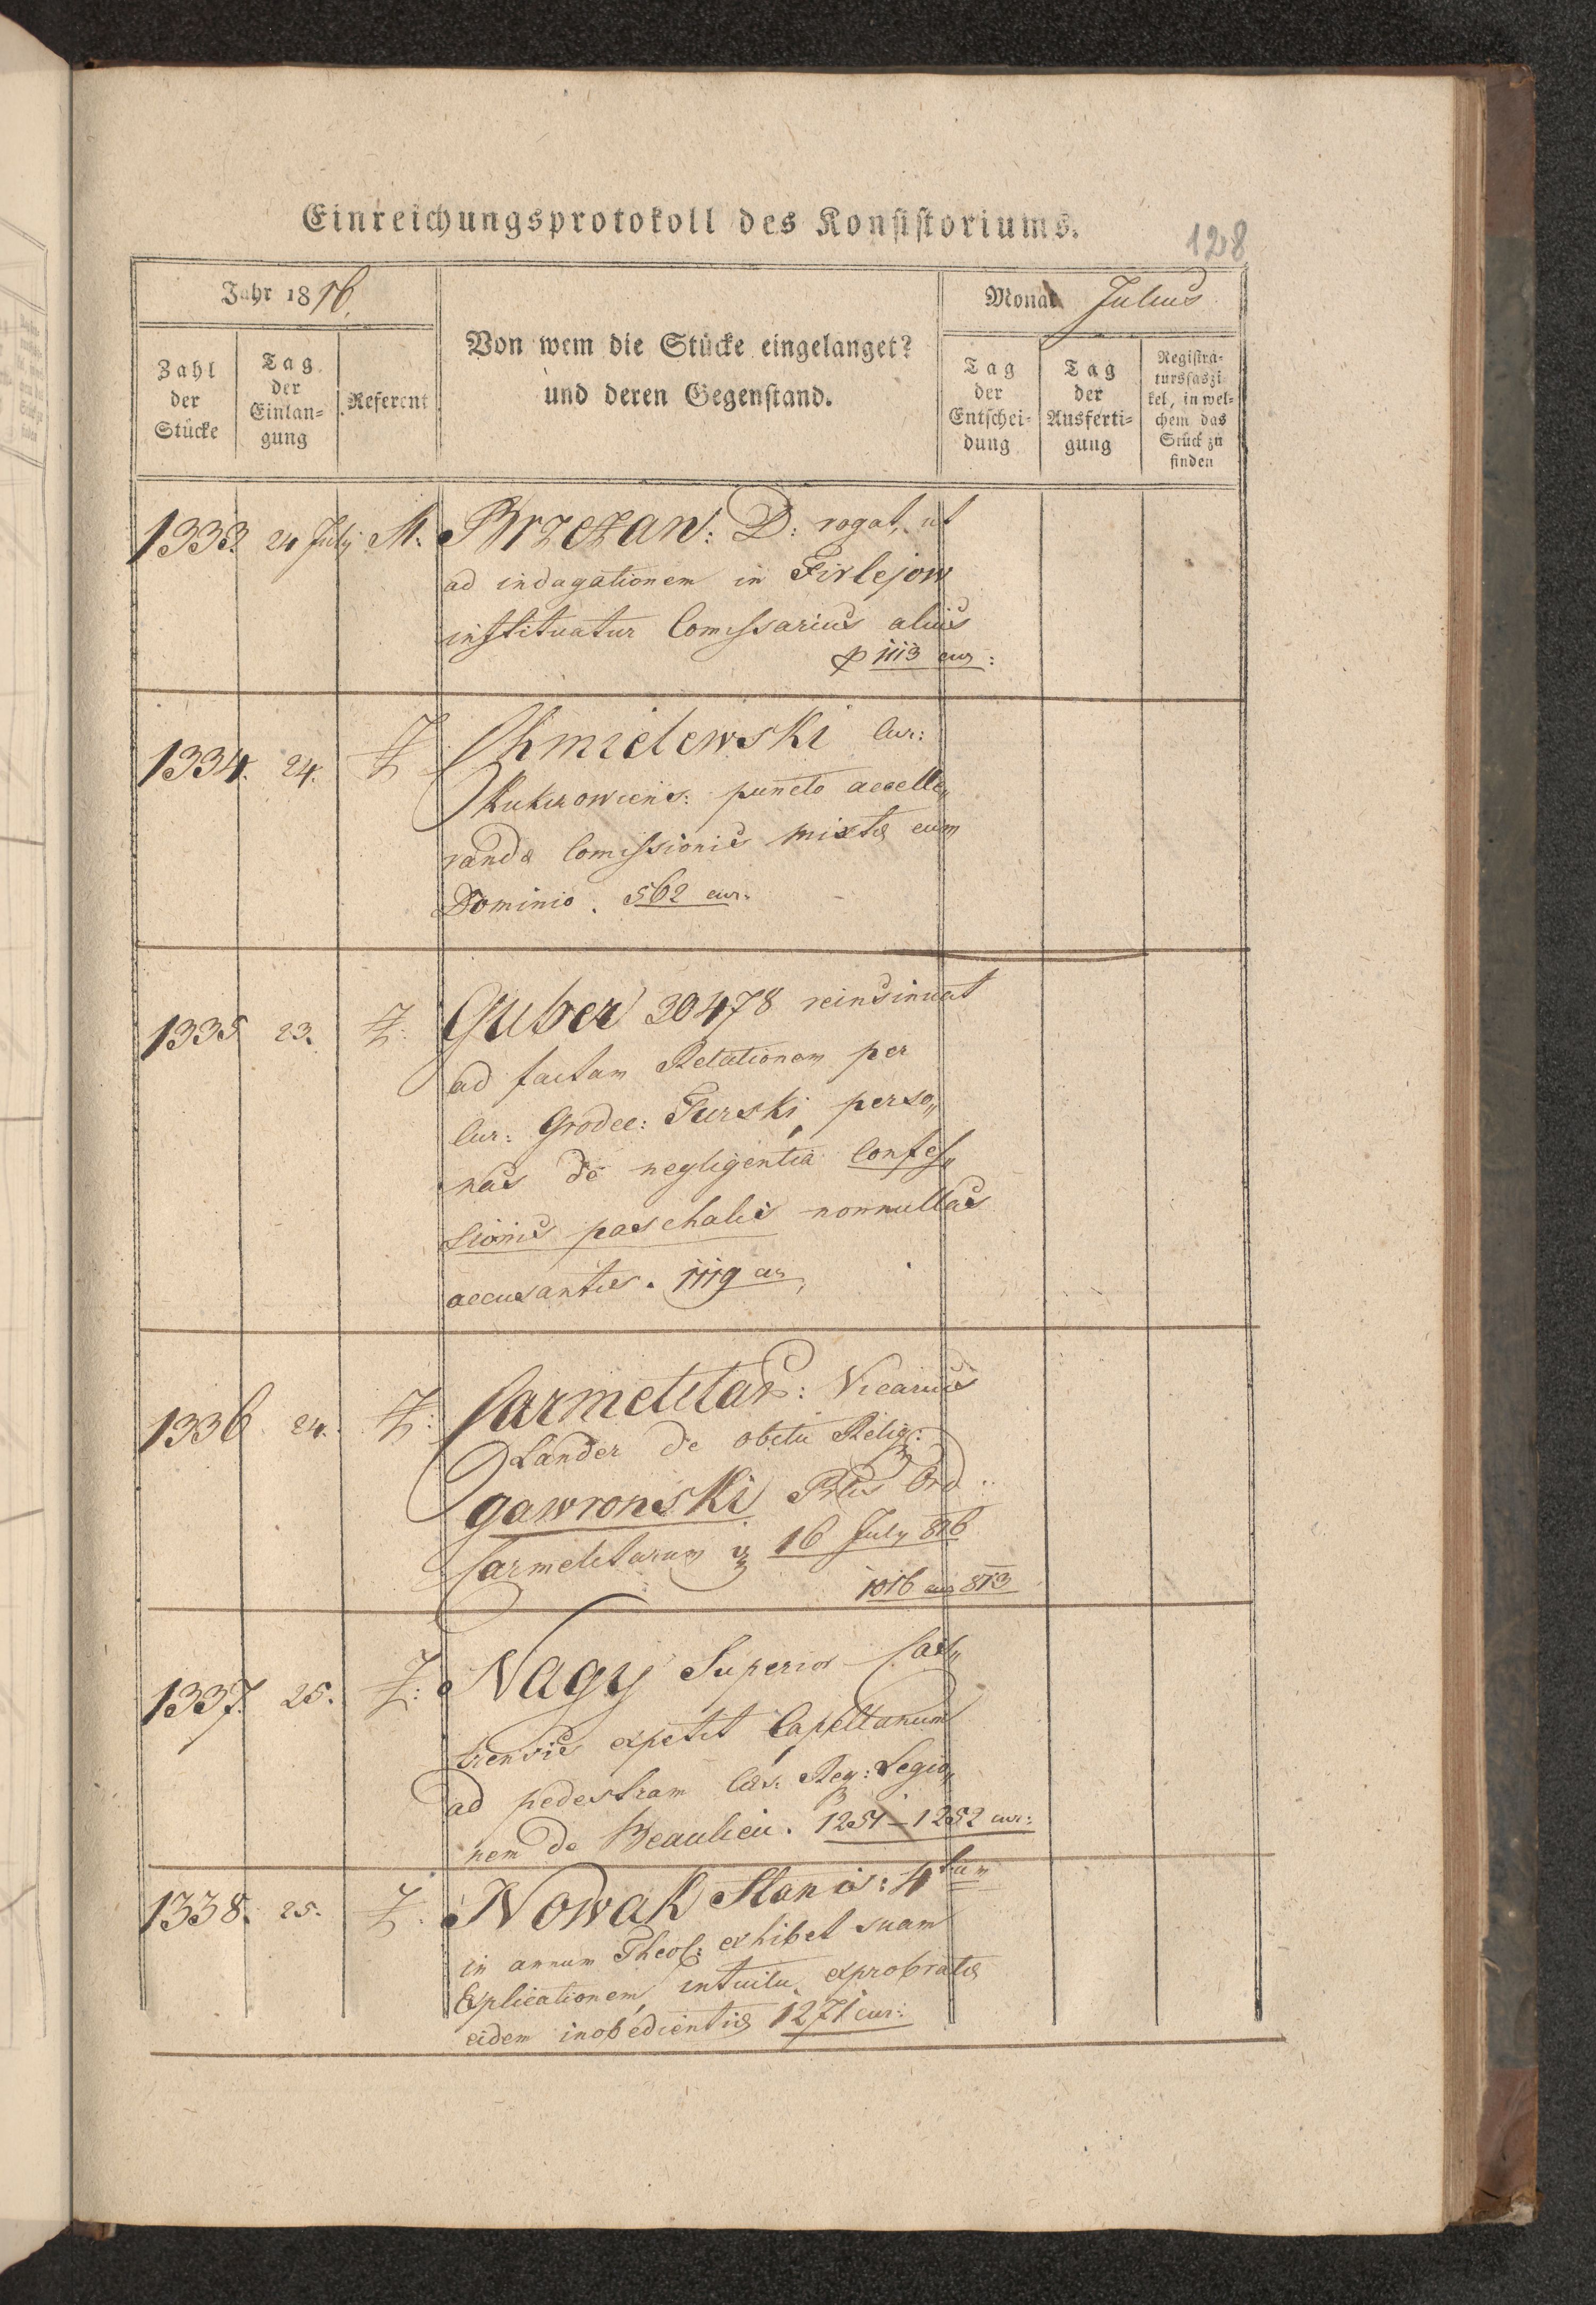 Einreichungsprotokoll des Konsistoriums.
128
Jahr 1816.
Monat Julius
Zahl der Stücke
Tag der Einlan=gung
Referent
Von wem die Stücke eingelanget?
und deren Gegenstand.
Tag der Entschei=dung
Tag der Ausferti=gung
Registra=tursfaszi=kel, in wel=chem das Stück zu finden
1333. 24 July M. Brzezan: D: rogat, ut
ad indagationem in Firlejow
instituatur Comissarius alius
p 1113 cur:
1334. 24. Z Chmielewski Cur:
Kukizowiens: puncto accelle„
randæ Comissionis mixtæ cum
Dominio. 562 cur:
1335 23. Z: Guber 30478 reinsinuat
ad factam Relationem per
Cur: Grodec: Turski perso„
nas de negligentia Confes„
sionis paschalis nonnullas
accusantis. 1119 cur,
1336 24. Z: Carmelitar: Vicarius
Lander de obitu Relig:
Gawronski Prbs Ord:
Carmelitarum 16 July 816
1016 cur 813
1337. 25. Z: Nagy Superior Cas„
trensis expetit Capellanum
ad pedestram Cæs: Reg: Legio„
nem de Beaulieu. 1251–1252 cur:
1338. 25. Z: Nowak Stanis: 4tum
in annum Theol: exhibet suam
Explicationem, intuitu exprobratæ
eidem inobedientiæ 1271 cur: